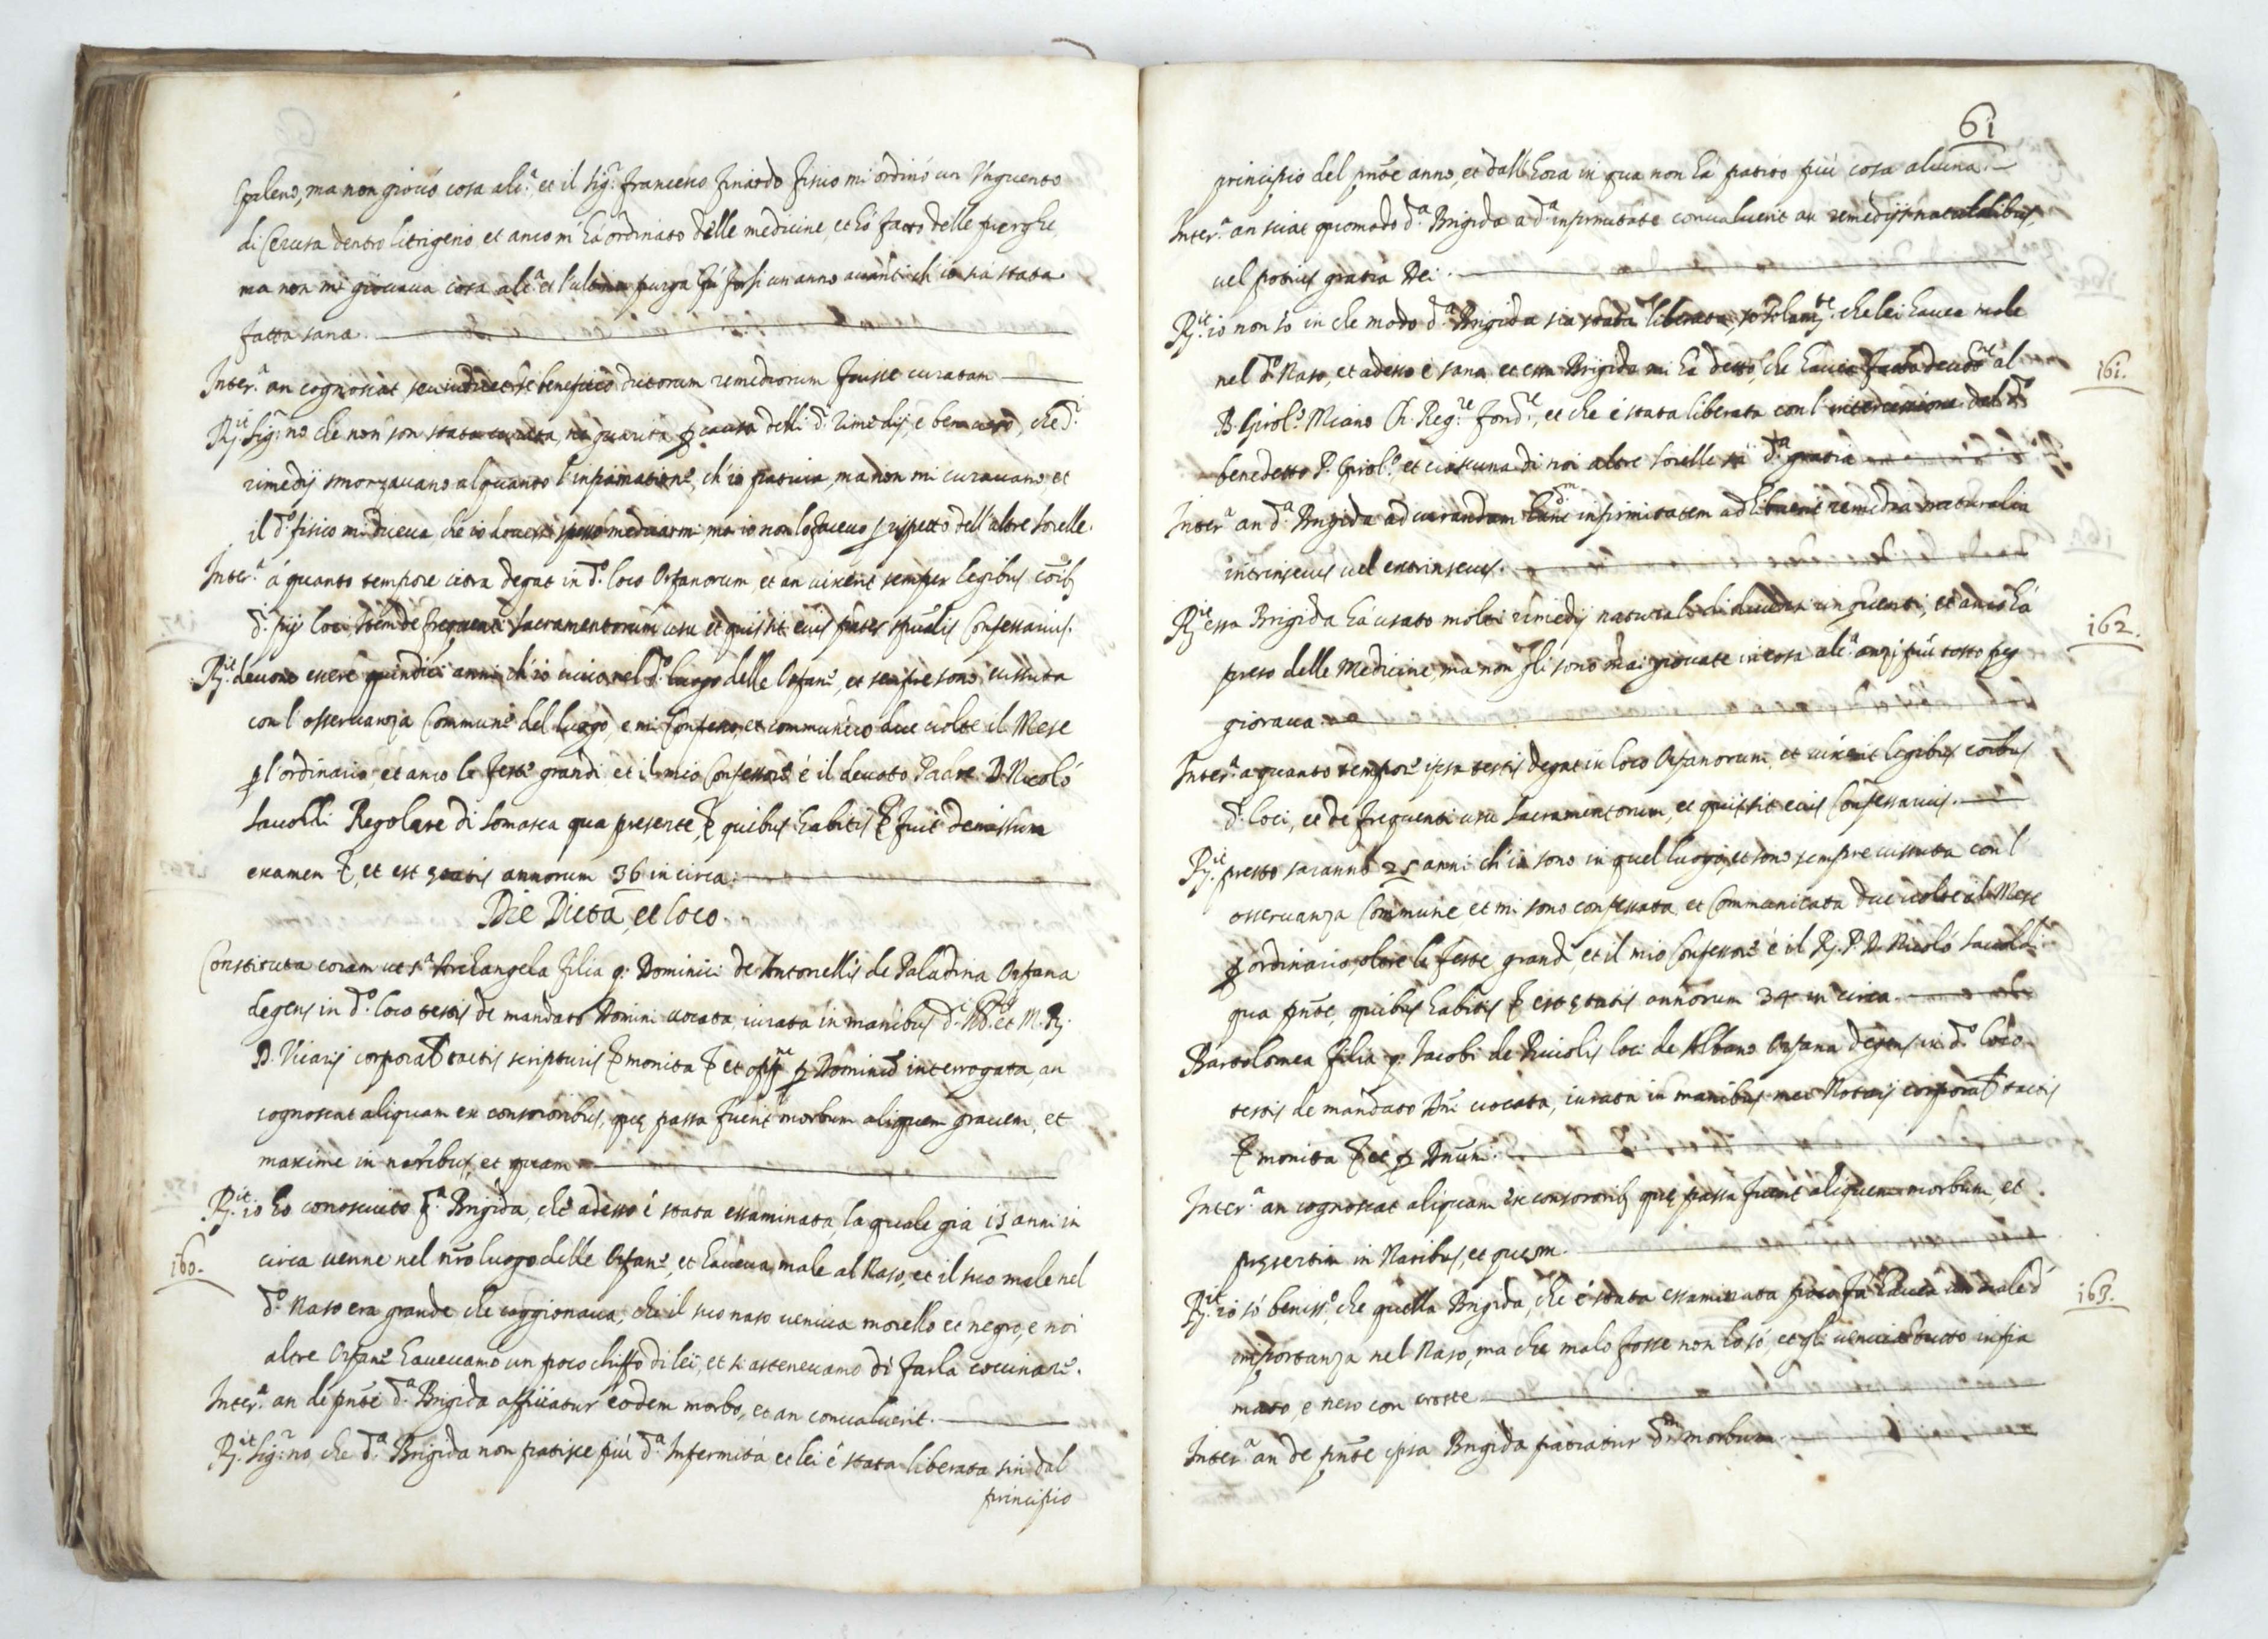 Galeno, ma non giovò cosa alc.ª et il Sig.r Francesco Finardo fisico mi ordinò un Unguento
di Cerusa dentro litrigerio, et anco m'hà ordinato delle medicine, et hò fatto delle purghe,
ma non mi giovava cosa alc.ª et l'ultima purga fù forsi un anno avanti ch'io sia stata
fatta sana.
Inter.ª an cognoscat seu beneficio dictorum remediorum fuisse curatam
Rx.it Sig.r no che non son stata curata, ne guarita p causa delli d.i rimedij, è ben vero, che d.i
rimedij smorzavano alquanto l'infiamatione, ch'io pativa, ma non mi curavano, et
il d.o fisico mi diceva, che io dovessi spesso medicarmi, ma io non lo facevo p rispetto dell'altre sorelle.
Inter.ª à quanto tempore citra degat in d.o loco Orfanorum, et an vixerit semper legibus coib
d.i pij loci Item de frequenti sacramentorum usu et quis sit eius pater spualis Confessarius.
Rx.it devono essere quindici anni ch'io vivo nel d.o luogo delle Orfane, et sempre sono vissuta
con l'osservanza Commune del luogo, e mi confesso, et communico due volte il Mese
p l'ordinario, et anco le feste grandi, et il mio Confessore è il devoto Padre D. Nicolò
Savoldi Regolare di Somasca qua presente, quibus habitis fuit dimissum
examen, et est etatis annorum 36 in circa.
Die Dicta, et loco.
Constituta coram ut s.ª Archangela filia q. Dominici de Antonellis de Paladina Orfana
degens in d.o loco testis de mandato Domini vocata, iurata in manibus d.i et M. R.
D. Vicarij corporal tactis scripturis monita et p Dominu interrogata, an
cognoscat aliquam ex consororibus, que passa fuerit morbum aliquem gravem, et
maxime in naribus, et quam
Rx.it io ho conosciuto d.ª Brigida, che adesso è stata essaminata, la quale già 15 anni in
160.
circa venne nel nro luogo delle Orfane, et haveva male al Naso, et il suo male nel
d.o Naso era grande che caggionava, che il suo naso veniva morello et negro, e noi
altre Orfane havevamo un poco schiffo di lei, et si astenevamo di farla cuccinare.
Inter.ª an de pnte d.ª Brigida afficiatur eodem morbo, et an convaluerit.
Rx.it Sig.r no che d.ª Brigida non patisce più d.ª Infermità et lei è stata liberata sin dal
principio
61
principio del pnte anno, et dall'hora in qua non hà patito più cosa alcuna.
Inter.ª an sciat quomodo d.ª Brigida a d.ª infirmitate convaluerit an remedijs naturalibus,
vel potius gratia Dei.
Rx.it io non sò in che modo d.ª Brigida sia stata liberata, sò solam.te che lei havea male
nel d.o Naso, et adesso è sana et essa Brigida mi hà detto, che havea fatto al
161.
B. Girol.o Miano Ch. Reg.re Fond.re, et che è stata liberata con l'intercessione del d.o
benedetto P. Girol.o et ciascuna di noi altre sorelle sà d.ª gratia
Inter.ª an d.ª Brigida ad curandam d.m infirmitatem adhibuerit remedia naturalia
intrinsecus vel extrinsecus.
Rx.it essa Brigida hà usato molti rimedij naturali di diversi unguenti, et anco hà
162.
preso delle Medicine, ma non gli sono mai giovate in cosa alc.ª anzi più tosto peg
giorava.
Inter.ª a quanto tempore ipsa testis degat in loco Orfanorum, et vixerit legibus coibus
d.i loci, et de frequenti usu sacramentorum, et quis sit eius Confessarius.
Rx.it presto saranno 25 anni ch'io sono in quel luogo, et sono sempre vissuta con l'
osservanza Commune et mi sono confessata, et Communicata due volte il Mese
p ordinario, oltre le feste grandi, et il mio Confessore è il R. P. D. Nicolò Savoldi
qua pnte, quibus habitis est etatis annorum 34 in circa.
Bartolomea filia q. Iacobi de Ricciolis loci de Albano Orfana degens in d.o loco
testis de mandato Dni vocata, iurata in manibus mei Notarij corporal tactis
monita et p Dnum.
Inter.ª an cognoscat aliquam ex consororib que passa fuerit aliquem morbum, et
presertim in Naribus, et quem.
Rx.it io sò beniss.o che quella Brigida, che è stata essaminata poco fà havea un male d'
163.
importanza nel Naso, ma che male fosse non lo sò, et gli veniva tutto infia
mato, e nero con croste
Inter.ª an de pnte ipsa Brigida patiatur d.m morbum